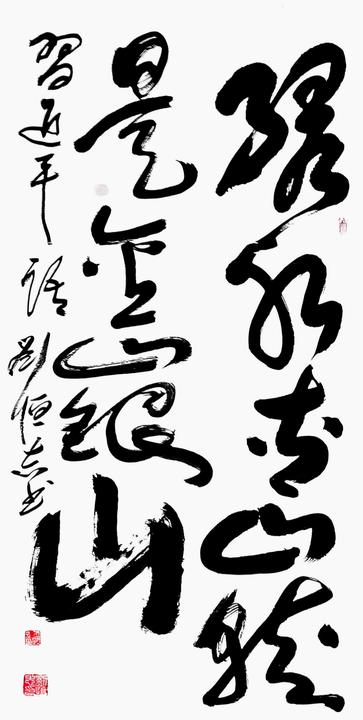 绿水青山就
是金山银山
習近平語劉恒志书